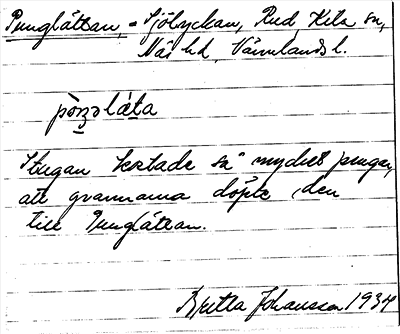 Pungláttan, = Sjölyckan, Rud, Kila sn,
Näs hd, Värmlands l.
pòŋəláta
Stugan kostade så mycket pengar,
att grannarna döpte den
till Pungláttan.
Britta Johansson 1934